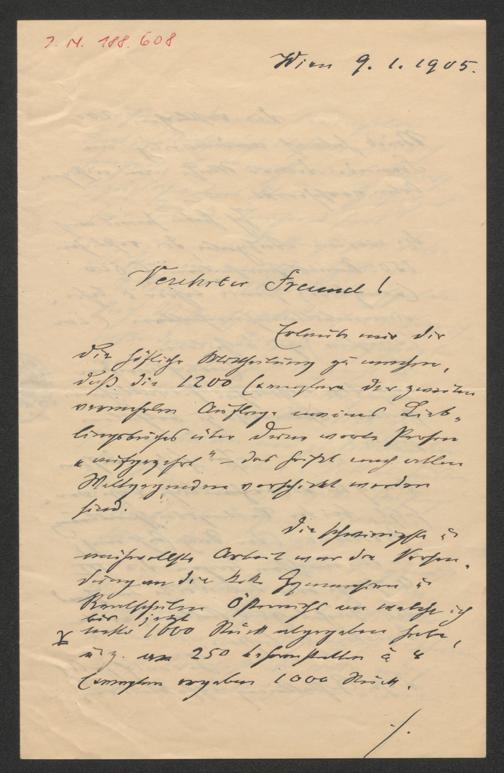 J. N. 188.608
Wien 9. 1. 1905.
Verehrter Freund!
Erlaube mir dir
die höfliche Mittheilung zu machen,
daß die 1200 Exemplare der zweiten
vermehrten Auflage meines Lieb-
lingsbuches über Deine werte Person
„aufgezehrt" – das heißt nach allen
Weltgegenden verschickt worden
sind.
Die schwierigste u
mühevollste Arbeit war die Versen-
dung an die k.k. Gymnasien u
Realschulen Österreichs an welche ich
bis jetzt
1000 Stück abgegeben habe,
u. z. 250 Lehranstalten à 4
Exemplare ergeben 1000 Stück.
./.